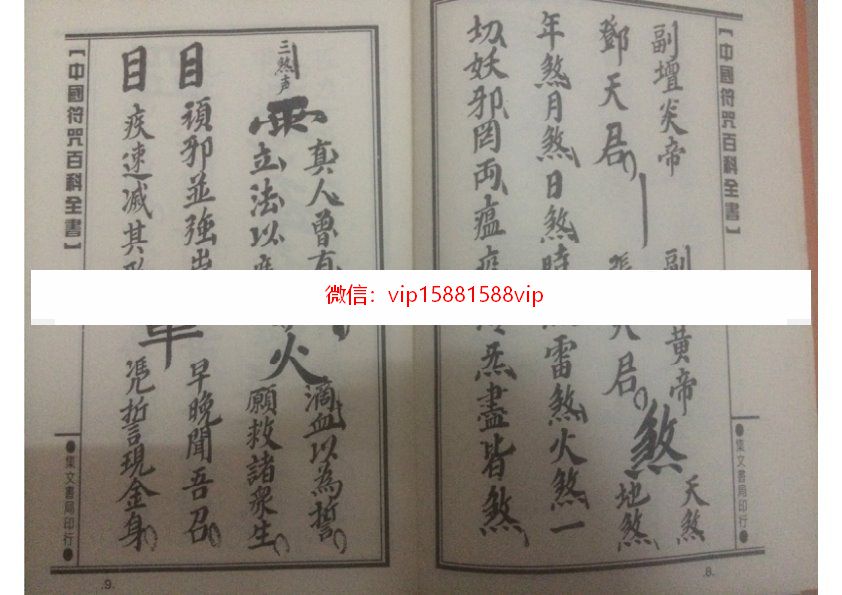 【中國符咒百科全書】
●集文書局印行●
副壇炎帝 副 黃帝
鄧天君 天君
煞
天煞
地煞
年煞月煞日煞時 雷煞火煞一
切妖邪罔両瘟 炁盡皆煞
.8.
微信：vip15881588vip
三煞声
真人曾有 滴血以為誓
立法以 火 願救諸衆生
目 頑邪並強出 早晚聞吾召
目 疾速减其 凴誓言現金身
【中國符咒百科全書】
●集文書局印行●
.9.